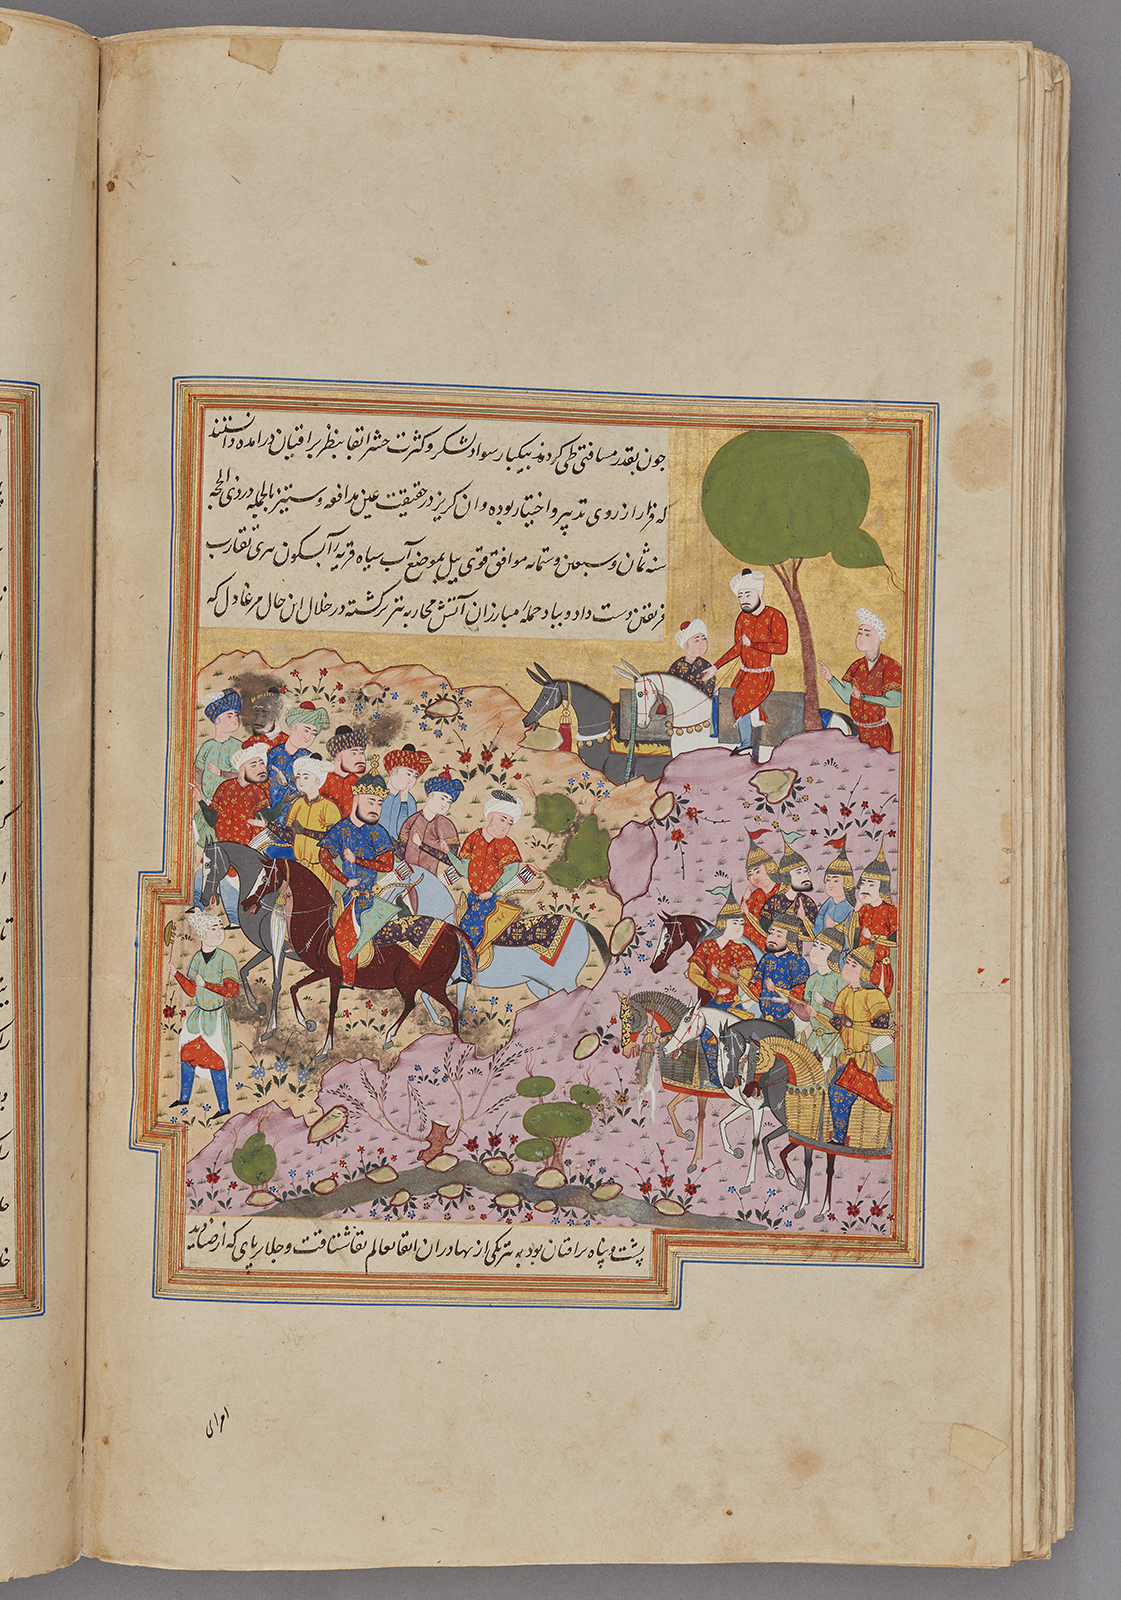 جون بقدر مسافتی طی کردند بیکبار سواد لشکر و کثرت حشر اتقا بنظر براقیان درامده دانستند
که فرار از روی تدبیر و اختیار بوده و ان کریز در حقیقت عین مدافعه و ستیز بالجمله در ذی الحجه
سنه ثمان و سبعین و ستمایه موافق قوی ییل بموضع آب سیاه قریه آبکون هری تقارب
فریقین دست داد و بباد حمله مبارزان آتش محاربه تیز کشته در خلال این حال مرغاول که
پشت و پناه براقیان بود به تیر یکی از بهادران اتقا بعالم بقا شتافت و جلایرتای که از صنادید
امرای